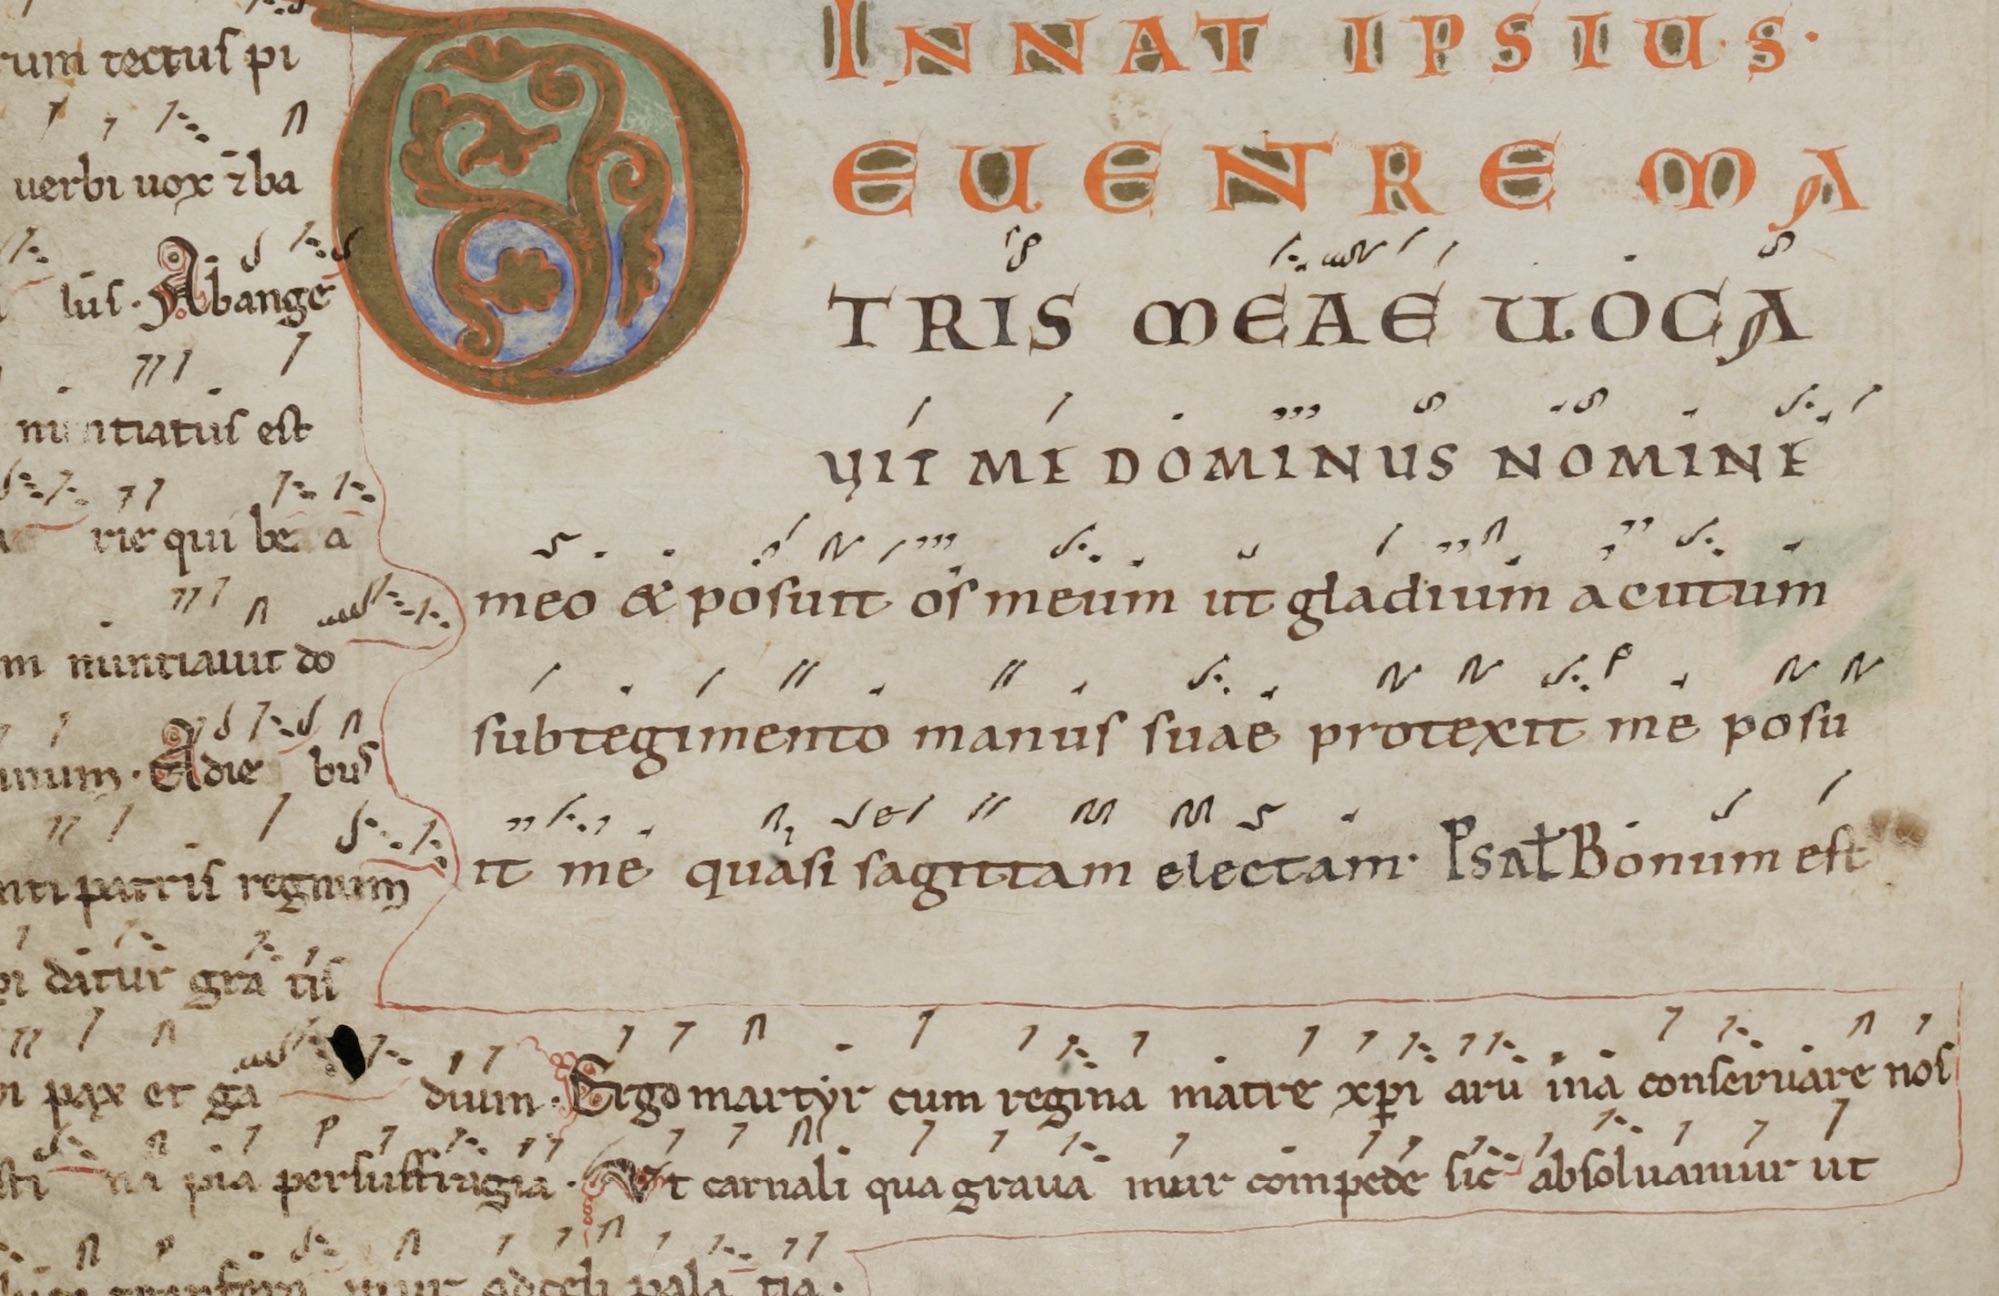 IN NAT IPSIUS·
DE UENTRE MA
TRIS MEAE UOCA
UIT ME DOMINUS NOMINE
meo & posuit os meum ut gladium acutum
sub tegimento manus suae protexit me posu
it me quasi sagittam electam· Psal Bonum est
rum tectus pi
uerbi uox ⁊ ba
lus· Ab ange
nuntiatus est
rie qui be a
m nuntiauit do
minum· A die bus
nti patris regnum
pi datur gra tis
pi pax et ga dium· Ergo martyr cum regina matre xp̄i aru ina conseruare nos
sti na pia per suffragia· Ut carnali qua graua mur compede sic absoluamur ut
mur ad celi pala tia·